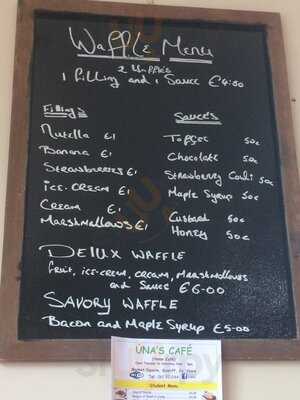 Waffle Menu
2 Waffles
1 Filling and 1 Sauce €4.50
Filling's
Nutella €1
Banana €1
Strawberrys €1
Ice-Cream €1
Cream €1
Marshmallows €1
Sauce's
Toffee 50c
Chocolate 50c
Strawberry Couli 50c
Maple Syrup 50c
Custard 50c
Honey 50c
Delux Waffle
fruit, ice-cream, cream, Marshmallows
and Sauce €6.00
Savory Waffle
Bacon and Maple Syrup €5.00
ÚNA'S CAFÉ
Student Menu